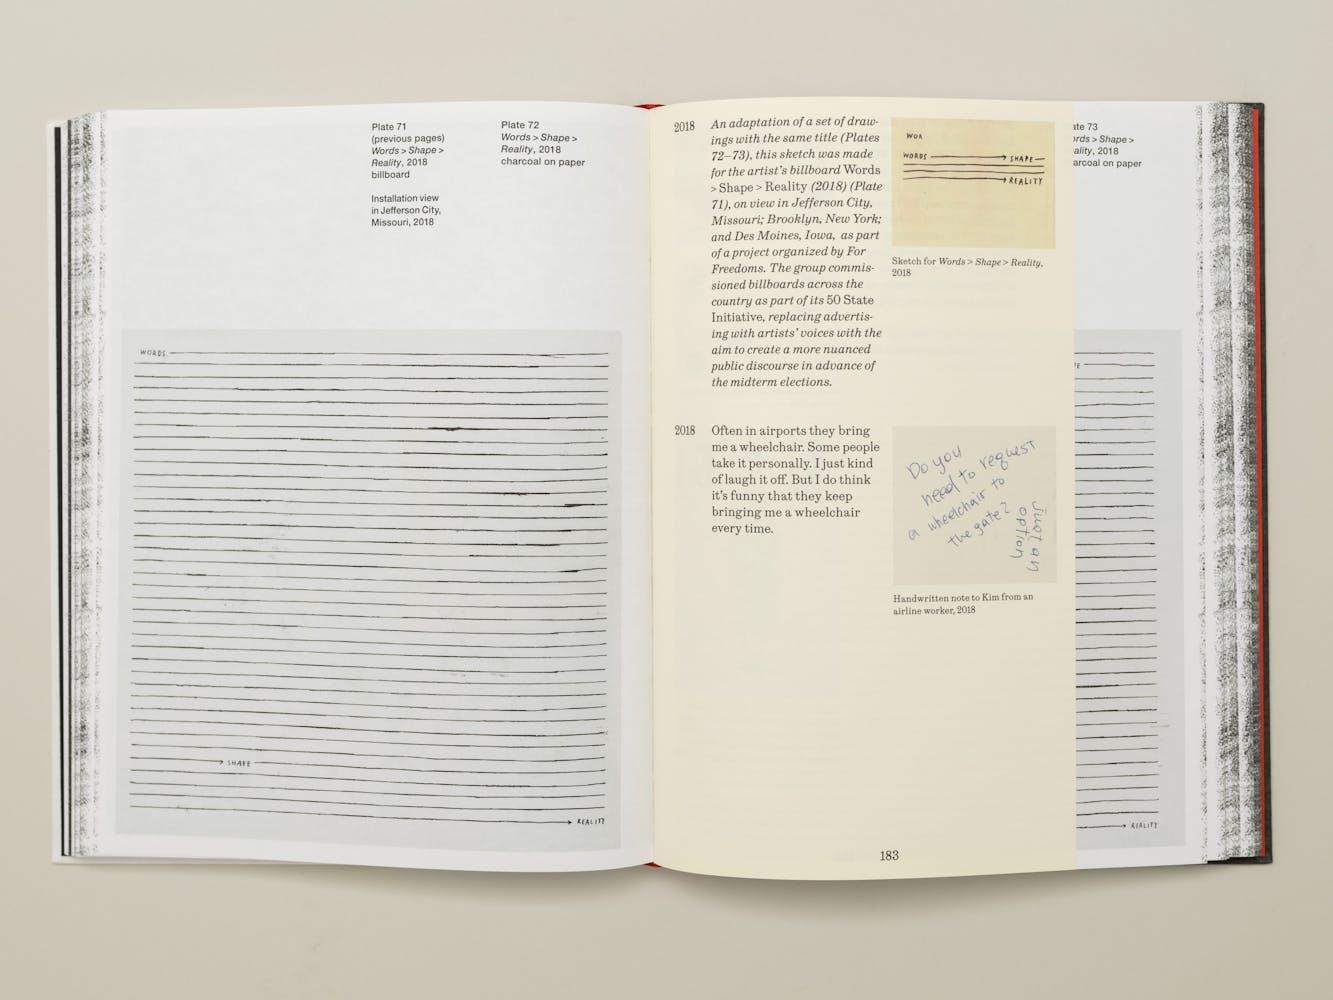 Plate 71
(previous pages)
Words > Shape >
Reality, 2018
billboard
Installation view
in Jefferson City,
Missouri, 2018
Plate 72
Words > Shape >
Reality, 2018
charcoal on paper
WORDS
SHAPE
REALITY
2018
An adaptation of a set of draw-
ings with the same title (Plates
72–73), this sketch was made
for the artist's billboard Words
> Shape > Reality (2018) (Plate
71), on view in Jefferson City,
Missouri; Brooklyn, New York;
and Des Moines, Iowa, as part
of a project organized by For
Freedoms. The group commis-
sioned billboards across the
country as part of its 50 State
Initiative, replacing advertis-
ing with artists' voices with the
aim to create a more nuanced
public discourse in advance of
the midterm elections.
WOR
WORDS SHAPE
REALITY
Sketch for Words > Shape > Reality,
2018
2018
Often in airports they bring
me a wheelchair. Some people
take it personally. I just kind
of laugh it off. But I do think
it's funny that they keep
bringing me a wheelchair
every time.
Do you
need to request
a wheelchair to
the gate?
Just an
option
Handwritten note to Kim from an
airline worker, 2018
183
ate 73
ords > Shape >
ality, 2018
arcoal on paper
PE
REALITY